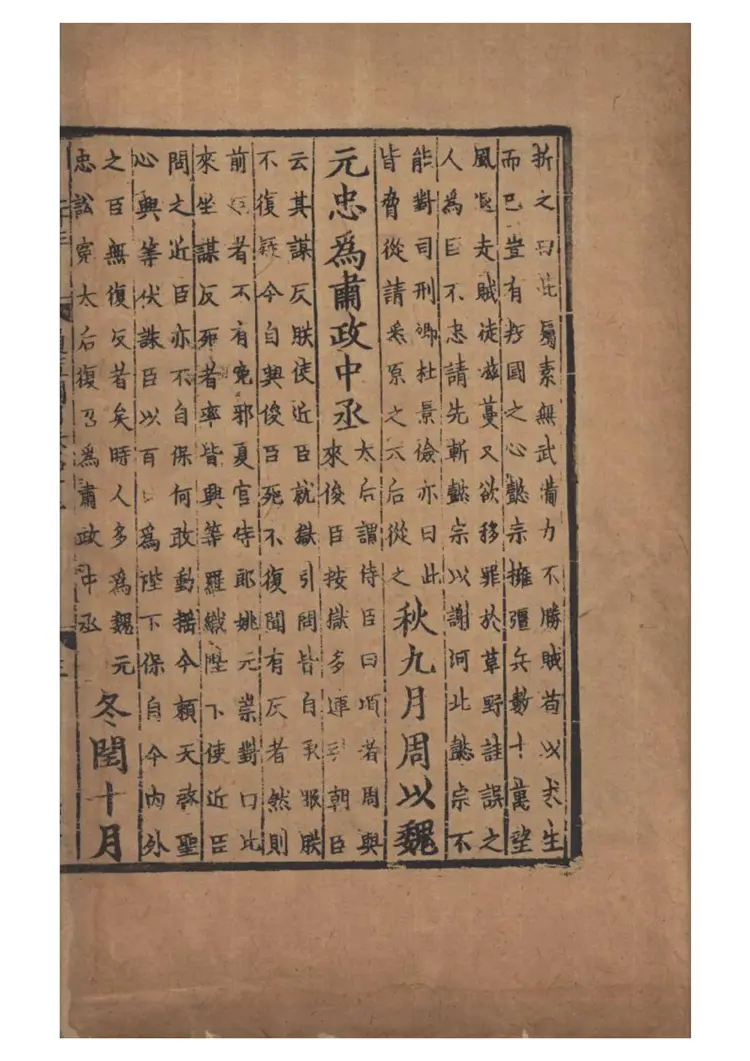 折之曰此屬素無武備力不勝賊苟以求生
而已豈有叛國之心懿宗擁彊兵數十萬望
風退走賊徒滋蔓又欲移罪於草野詿誤之
人爲臣不忠請先斬懿宗以謝河北懿宗不
能對司刑卿杜景儉亦曰此
皆脅從請悉原之太后從之
秋九月周以魏
元忠爲肅政中丞
太后謂侍臣曰頃者周興
來俊臣按獄多連引朝臣
云其謀反朕使近臣就獄引問皆自承服朕
不復疑今自興俊臣死不復聞有反者然則
前死者不有冤邪夏官侍郎姚元崇對曰比
來坐謀反死者率皆興等羅織陛下使近臣
問之近臣亦不自保何敢動搖今賴天啓聖
心興等伏誅臣以百口爲陛下保自今內外
之臣無復反者矣時人多爲魏元
忠訟冤太后復召爲肅政中丞
冬閏十月